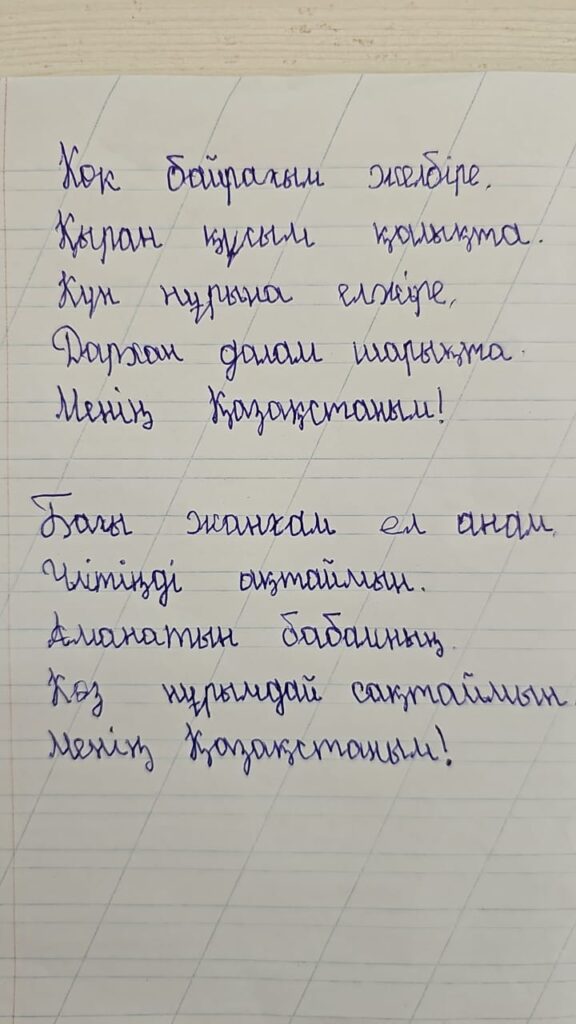 Көк байрағым желбіре,
Қыран құсым қалықта.
Күн нұрына елжіре,
Дархан далам шарықта.
Менің Қазақстаным!
Бағы жанған ел анам,
Үмітіңді ақтаймын.
Аманатын бабамның
Көз нұрымдай сақтаймын.
Менің Қазақстаным!